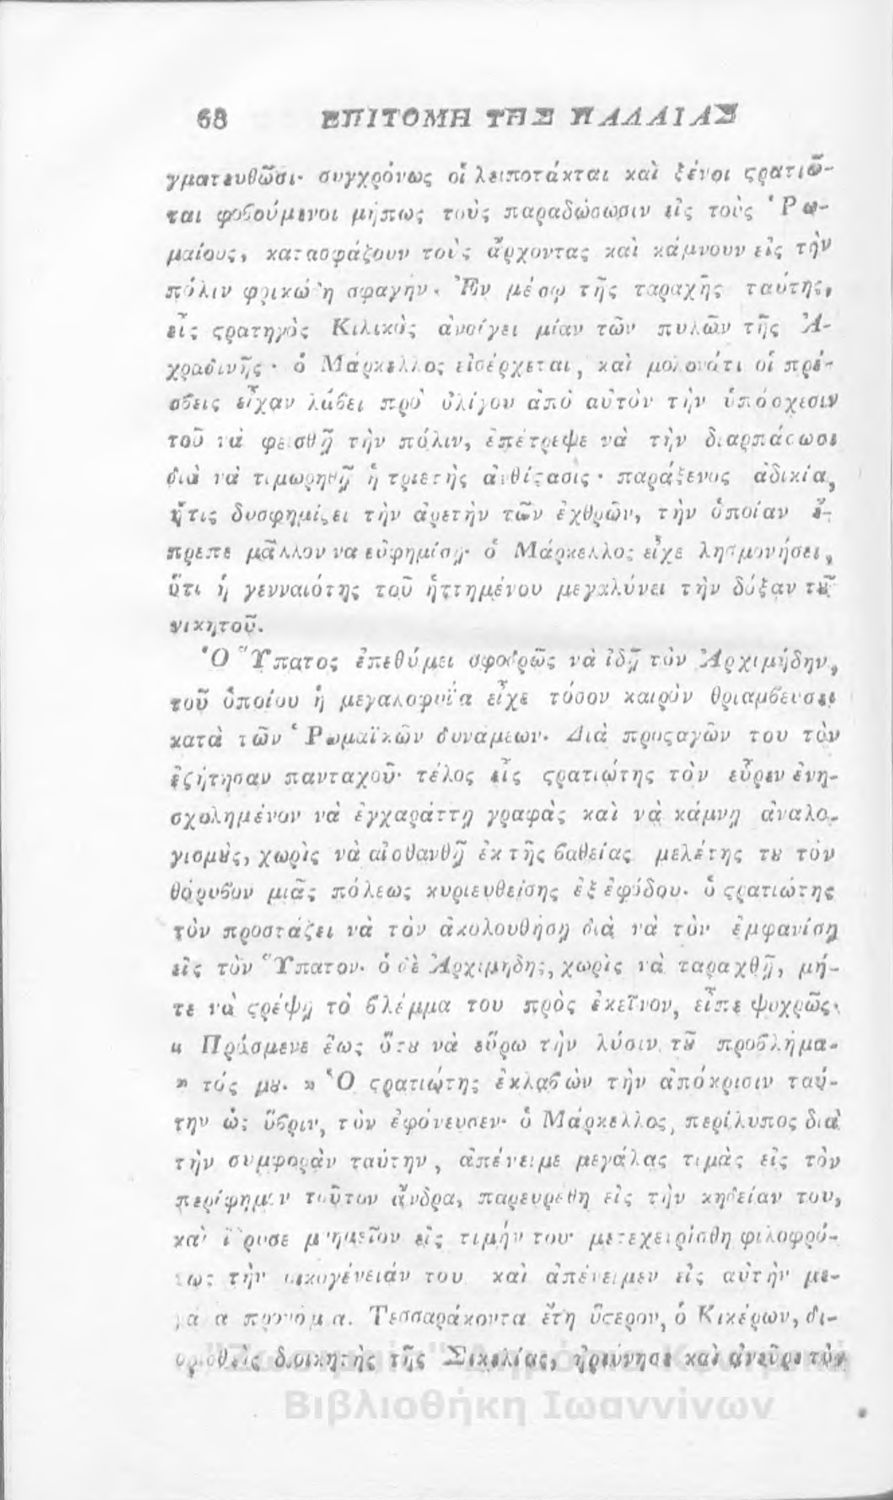 68 ΕΠΙΤΟΜΗ ΤΗΣ ΠΑΛΑΙΑΣ
γματευθῶσι· συγχρόνως οἱ λειποτάκται καὶ ξένοι ςρατιῶ-
ται φοβούμενοι μήπως τοὺς παραδώσωσιν εἰς τοὺς Ῥω-
μαίους, κατασφάζουν τοὺς ἄρχοντας καὶ κάμνουν εἰς τὴν
πόλιν φρικώδη σφαγήν· Ἐν μέσῳ τῆς ταραχῆς ταύτης,
εἷς ςρατηγὸς Κιλικὸς ἀνοίγει μίαν τῶν πυλῶν τῆς Ἀ-
χραδινῆς· ὁ Μάρκελλος εἰσέρχεται, καὶ μολονότι οἱ πρέ-
σβεις εἶχαν λάβει πρὸ ὀλίγου ἀπὸ αὐτὸν τὴν ὑπόσχεσιν
τοῦ νὰ φεισθῇ τὴν πόλιν, ἐπέτρεψε νὰ τὴν διαρπάσωσι
διὰ νὰ τιμωρηθῇ ἡ τριετὴς ἀνθίςασις· παράξενος ἀδικία,
ἥτις δυσφημίζει τὴν ἀρετὴν τῶν ἐχθρῶν, τὴν ὁποίαν ἔ-
πρεπε μᾶλλον να εὐφημίσῃ· ὁ Μάρκελλος εἶχε λησμονήσει,
ὅτι ἡ γενναιότης τοῦ ἡττημένου μεγαλύνει τὴν δόξαν τȣ͂
νικητοῦ.
Ὁ Ὕπατος ἐπεθύμει σφοδρῶς νὰ ἰδῇ τὸν Ἀρχιμήδην,
τοῦ ὁποίου ἡ μεγαλοφυΐα εἶχε τόσον καιρὸν θριαμβεύσει
κατὰ τῶν Ῥωμαϊκῶν δυνάμεων· Διὰ προςαγῶν του τὸν
ἐζήτησαν πανταχοῦ· τέλος εἷς ςρατιώτης τὸν εὗρεν ἐνη-
σχολημένον νὰ ἐγχαράττῃ γραφὰς καὶ νὰ κάμνῃ ἀναλο-
γισμȣ̀ς, χωρὶς νὰ αἰσθανθῇ ἐκ τῆς βαθείας μελέτης τȣ τὸν
θόρυβον μιᾶς πόλεως κυριευθείσης ἐξ ἐφόδου· ὁ ςρατιώτης
τὸν προστάζει νὰ τὸν ἀκολουθήσῃ διὰ νὰ τὸν ἐμφανίσῃ
εἰς τὸν Ὕπατον· ὁ δὲ Ἀρχιμήδης, χωρὶς νὰ ταραχθῇ, μή-
τε νὰ ςρέψῃ τὸ βλέμμα του πρὸς ἐκεῖνον, εἶπε ψυχρῶς·
« Πρόσμενε ἕως ὅτȣ νὰ εὕρω τὴν λύσιν τȣ͂ προβλήμα-
» τός μȣ· » Ὁ ςρατιώτης ἐκλαβὼν τὴν ἀπόκρισιν ταύ-
την ὡς ὕβριν, τὸν ἐφόνευσεν· ὁ Μάρκελλος, περίλυπος διὰ
τὴν συμφορὰν ταύτην, ἀπένειμε μεγάλας τιμὰς εἰς τὸν
περίφημον τοῦτον ἄνδρα, παρευρέθη εἰς τὴν κηδείαν του,
καὶ ἵδρυσε μνημεῖον εἰς τιμήν του· μετεχειρίσθη φιλοφρό-
νως τὴν οἰκογένειάν του καὶ ἀπένειμεν εἰς αὐτὴν με-
γάλα προνόμια. Τεσσαράκοντα ἔτη ὕςερον, ὁ Κικέρων, δι-
ορισθεὶς διοικητὴς τῆς Σικελίας, ἠρεύνησε καὶ ἀνεῦρε τὸν
Βιβλιοθήκη Ιωαννίνων